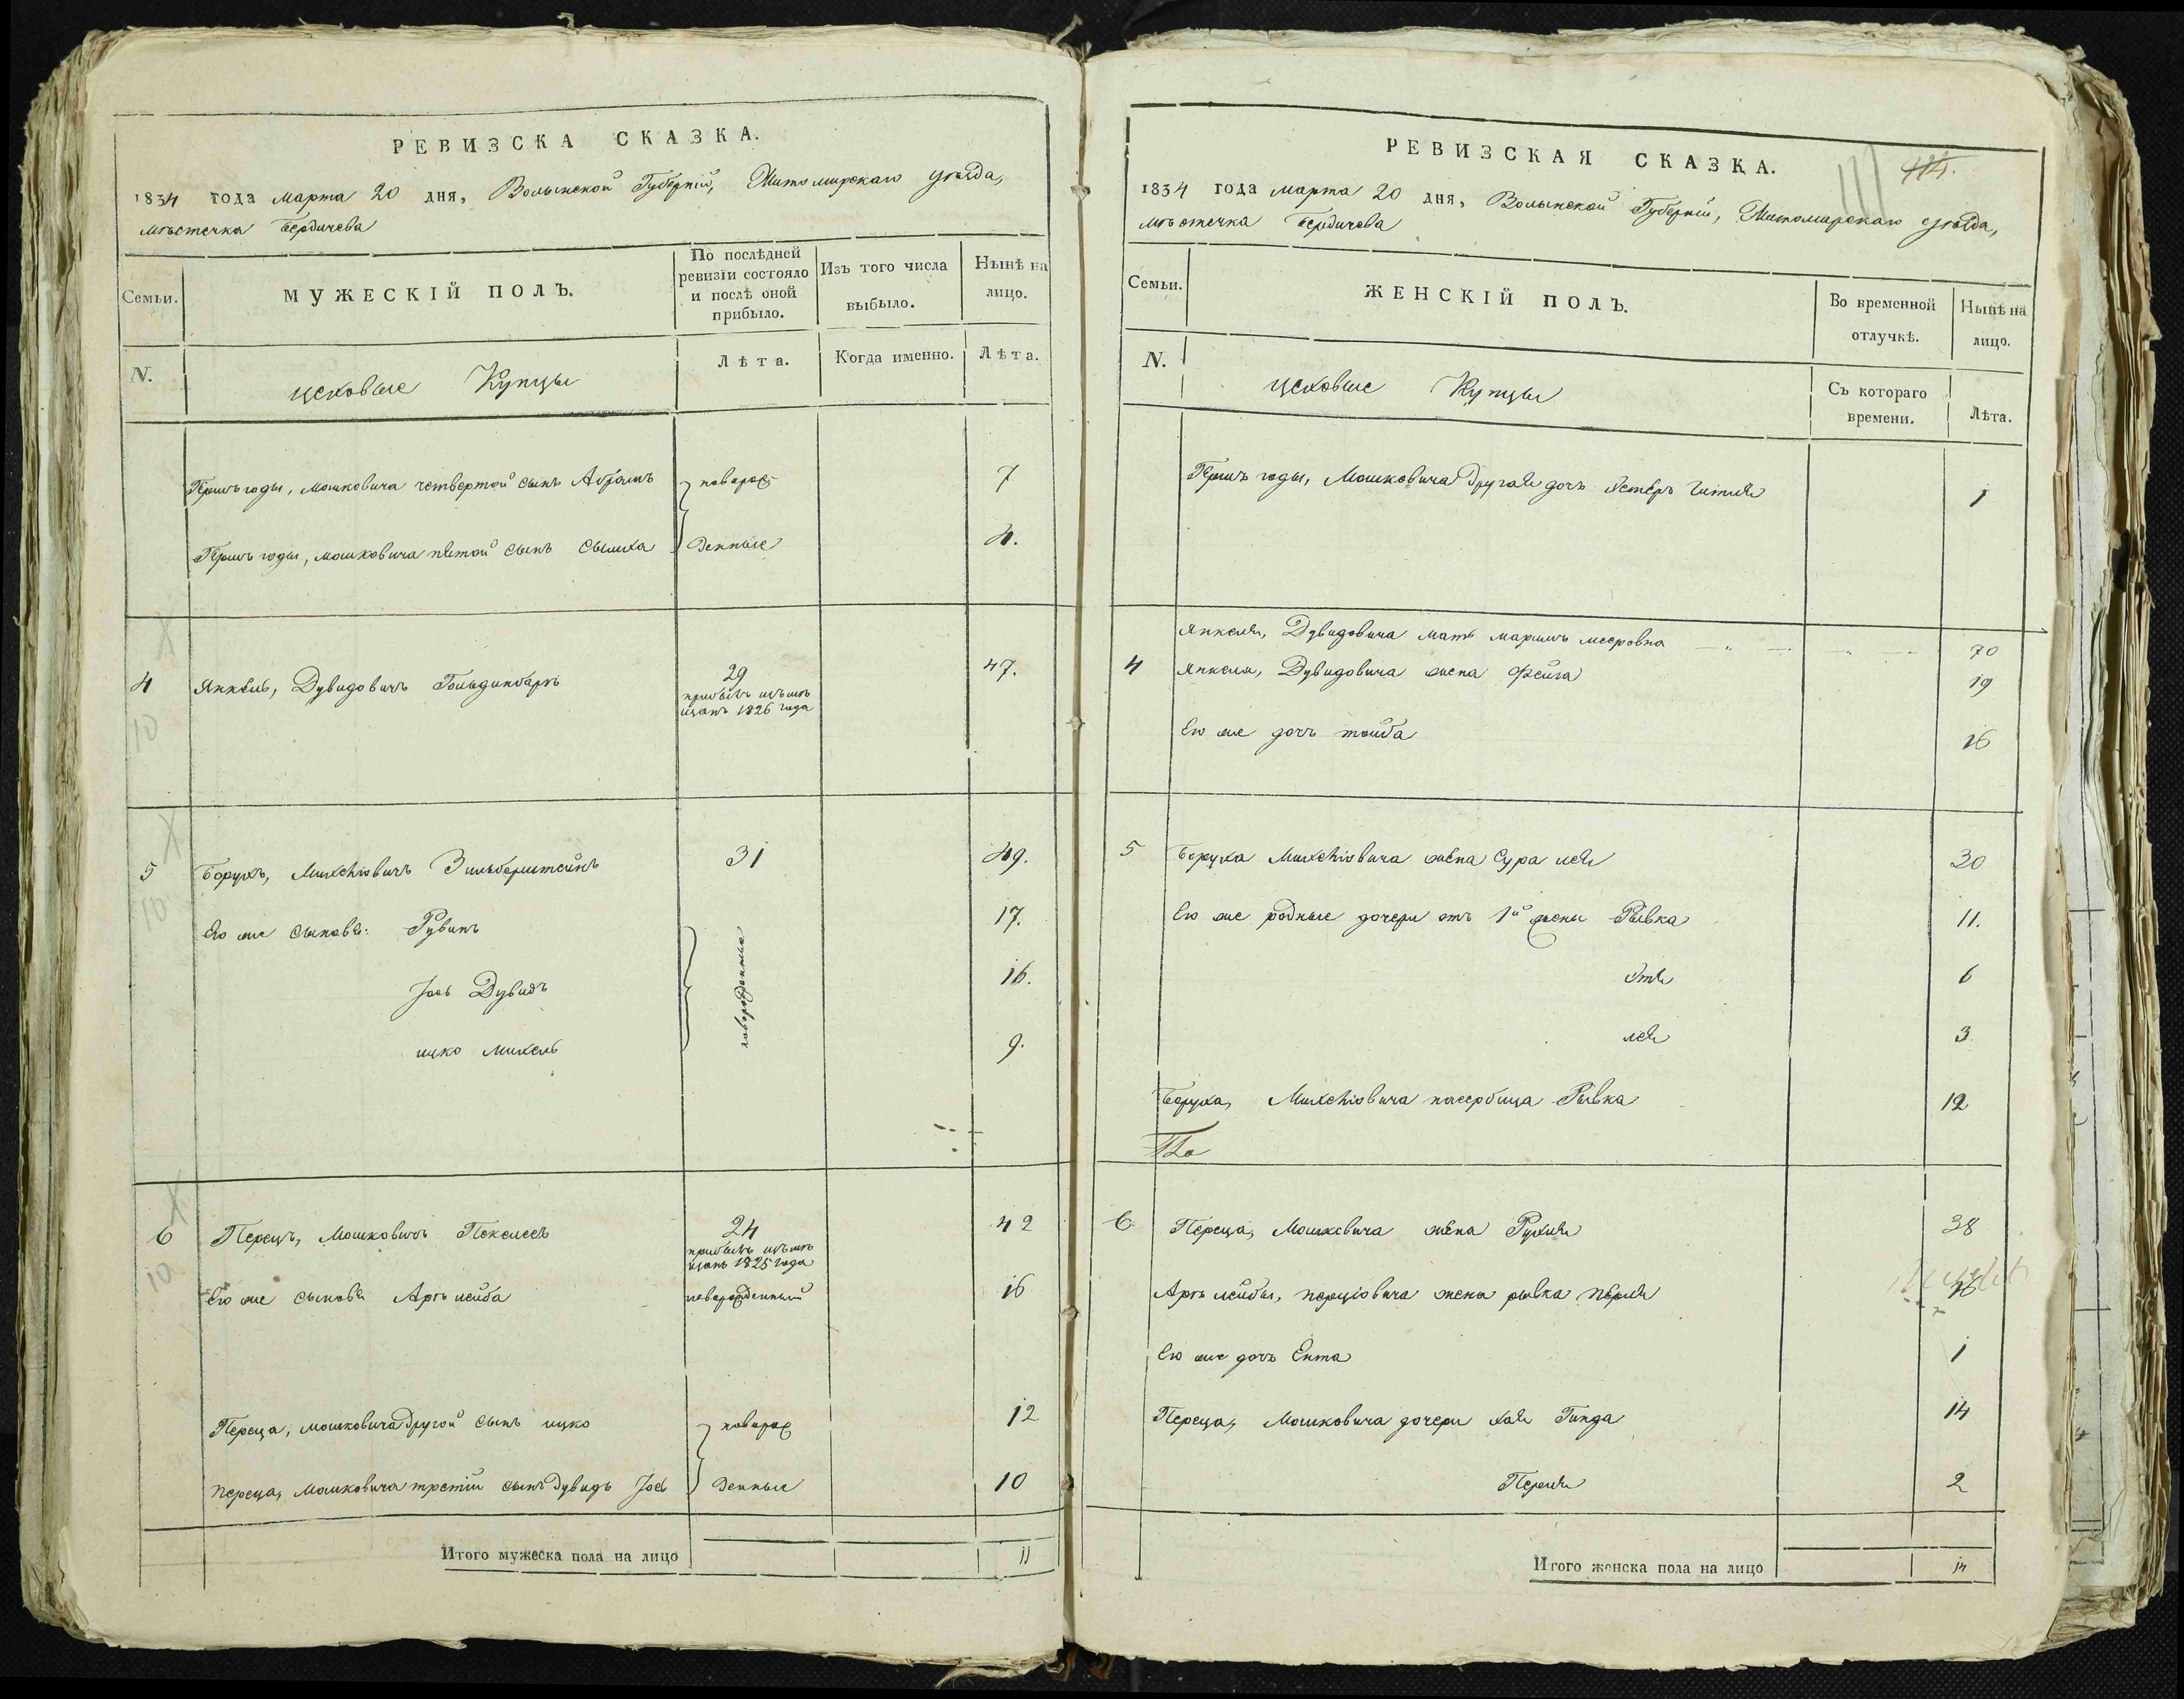 РЕВИЗСКА СКАЗКА.
1834 года марта 20 дня, Волынской Губерніи, Житомирскаго уѣзда,
мѣстечка Бердичева
Семьи.
МУЖЕСКІЙ ПОЛЪ.
По послѣдней
ревизіи состояло
и послѣ оной
прибыло.
Изъ того числа
выбыло.
Нынѣ на
лицо.
N.
Купцы
Лѣта.
Когда именно.
Лѣта.
Гершъ годы, Мошковича четвертой сынъ Абрамъ новорож 7
Гершъ годы, Мошковича пятой сынъ Сымха денные 4.
4 Янкель, Дувидовичъ 29 47.
прибылъ изъ мѣ
щанъ 1826 года
10
5 Борухъ, Зильберштейнъ 31 49.
10
Его же сыновья: Рувинъ новорожденные 17.
Іось Дувидъ 16.
ицко Михель 9.
6 Перецъ, Мошковичъ 24 42
прибылъ изъ мѣ
щанъ 1825 года
10
Его же сыновья Аръ лейба новорожденный 16
Переца, Мошковича другой сынъ ицко новорож 12
Переца, Мошковича третій сынъ Дувидъ Іось денные 10
Итого мужеска пола на лицо 11
РЕВИЗСКАЯ СКАЗКА.
111
1834 года марта 20 дня, Волынской Губерніи, Житомирскаго уѣзда,
мѣстечка Бердичева
Семьи.
ЖЕНСКІЙ ПОЛЪ.
Во временной
отлучкѣ.
Нынѣ на
лицо.
N.
Купцы
Съ котораго
времени.
Лѣта.
Гершъ годы, Мошковича другая дочь Естеръ Гитля 1
Янкеля, Дувидовича мать маримъ мееровна 70
4 Янкеля, Дувидовича жена Фейга 19
Его же дочь тойба 16
5 Боруха жена Сура лея 30
Его же родные дочери отъ 1й жены Рывка 11.
Этя 6
лея 3
Боруха, пасербица Рывка 12
6 Переца, Мошковича жена Рухля 38
Аръ лейбы, перціовича жена рывка перля 16
Его же дочь Ента 1
Переца, Мошковича дочери хая Гинда 14
Перля 2
Итого женска пола на лицо 14